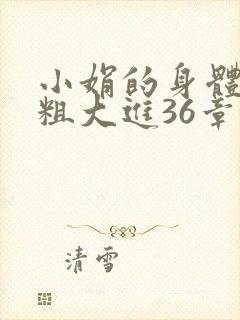 小娟的身體
粗大進36章
清雪